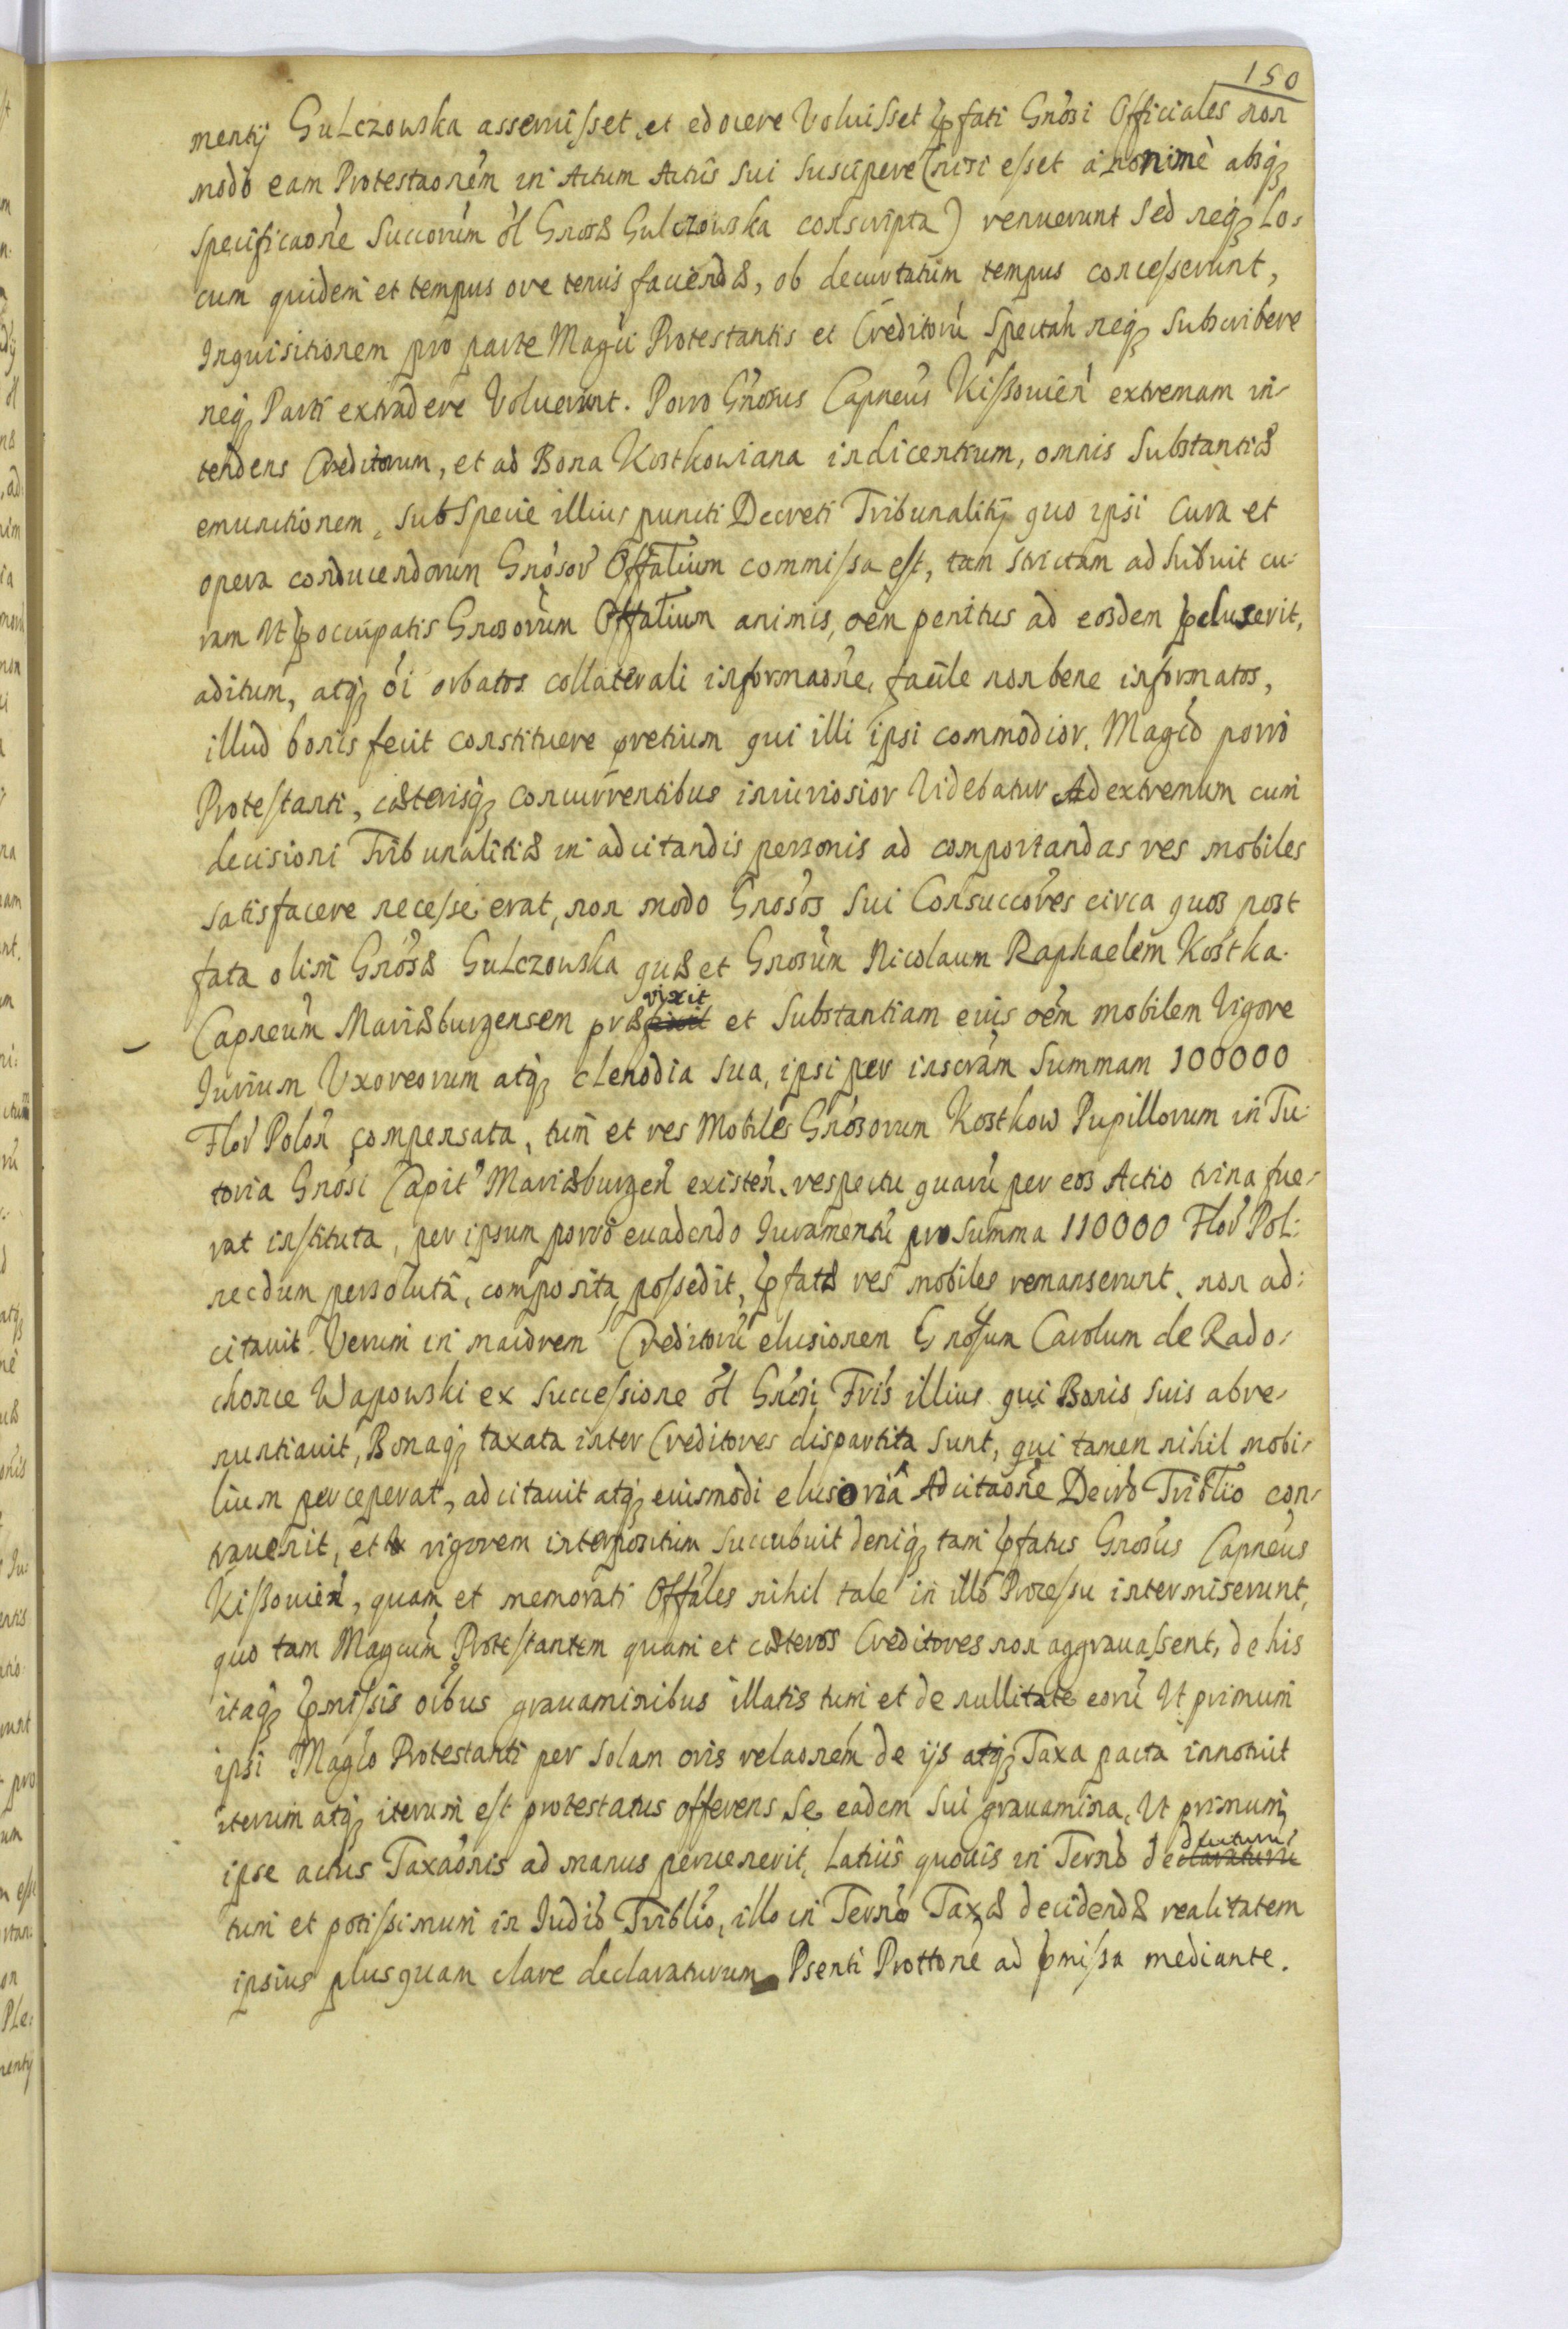 150
mentij Gulczowska asseruisset, et edocere Voluisset, pfati Gnosi Officiales non
modo eam Protestaonem in Actum Actus sui suscipere (nisi esset anonime absq3
specificaone Succorum ol Gnosae Gulczowska conscripta) renuerunt Sed neq3 Lo-
cum quidem et tempus ore tenus faciendae, ob decurtatum tempus concesserunt,
Inquisitionem pro parte Magci Protestantis et Creditoru Spectan neq3 subscribere
neq3 Parti extradere Voluerunt. Porro Gnosus Capneus Kiszouien extremam in-
tendens Creditorum, et ad Bona Kostkowiana indicentrum, omnis Substantiae
emunctionem, sub specie illius puncti Decreti Tribunalitij quo ipsi Cura et
opera conducendorum Gnosor Offalium commissa est, tam strictam adhibuit cu-
ram Ut poccupatis Gnosorum Offalium animis, oem penitus ad eosdem pcluserit,
aditum, atq3 oi orbatos collaterali informaone, facile non bene informatos,
illud bonis fecit constituere pretium qui illi ipsi commodior, Magco porro
Protestanti, caeterisq3 concurrentibus iniuriosior Videbatur Ad extremum cum
decisioni Tribunalitiae in adcitandis personis ad comportandas res mobiles
satisfacere necesse erat, non modo Gnosos sui Consuccores circa quos post
fata olim Gnosae Gulczowska quae et Gnosum Nicolaum Raphaelem Kostka
vixit
Capneum Mariaeburgensem prae et Substantiam eius oem mobilem Vigore
Iurium Uxoreorum atq3 clenodia sua, ipsi per inscram Summam 100000
Flor Polon compensata, tum et res Mobiles Gnosorum Kostkow Pupillorum in Tu-
toria Gnosi Capit Mariaeburgen existen, respectu quaru per eos Actio trina fue-
rat instituta, per ipsum porro euadendo Iuramentu pro Summa 110000 Flor Pol:
necdum persoluta, composita, possedit, pfatae res mobiles remanserunt, non ad:
citauit. Verum in maiorem Creditoru elusionem Gnosum Carolum de Rado-
chonce Wapowski ex successione ol Gnosi Fris illius qui Bonis suis abre-
nuntiauit, Bonaq3 taxata inter Creditores dispartita sunt, qui tamen nihil mobi-
lium perceperat, adcitauit atq3 eiusmodi elusoria Adcitaone Decro Triblio con-
trauenit, et rigorem interpositum succubuit deniq3 tam pfatus Gnosus Capneus
Kiszouien, quam et memorati Offales nihil tale in illo Processu intermiserunt,
quo tam Magcum Protestantem quam et caeteros Creditores non aggrauassent, de his
itaq3 pmissis oibus grauaminibus illatis tum et de nullitate eoru Ut primum
ipsi Magco Protestanti per solam oris relaonem de ijs atq3 Taxa pacta innotuit
iterum atq3 iterum est protestatus offerens Se eadem sui grauamina, Ut primum
dcuturu
ipse actus Taxaonis ad manus peruenerit, Latius quouis in Terno declaraturu
tum et potissimum in Judio Triblio, illo in Terno Taxae decidendae realitatem
ipsius plusquam clare declaraturum Psenti Prottone ad pmissa mediante.